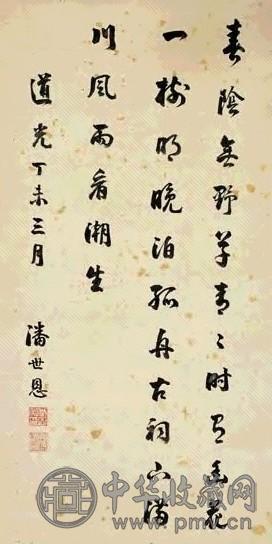 春陰垂野草青々時有幽花
一樹明晚泊孤舟古祠下滿
川風雨看潮生
道光丁未三月 潘世恩
中华收藏网